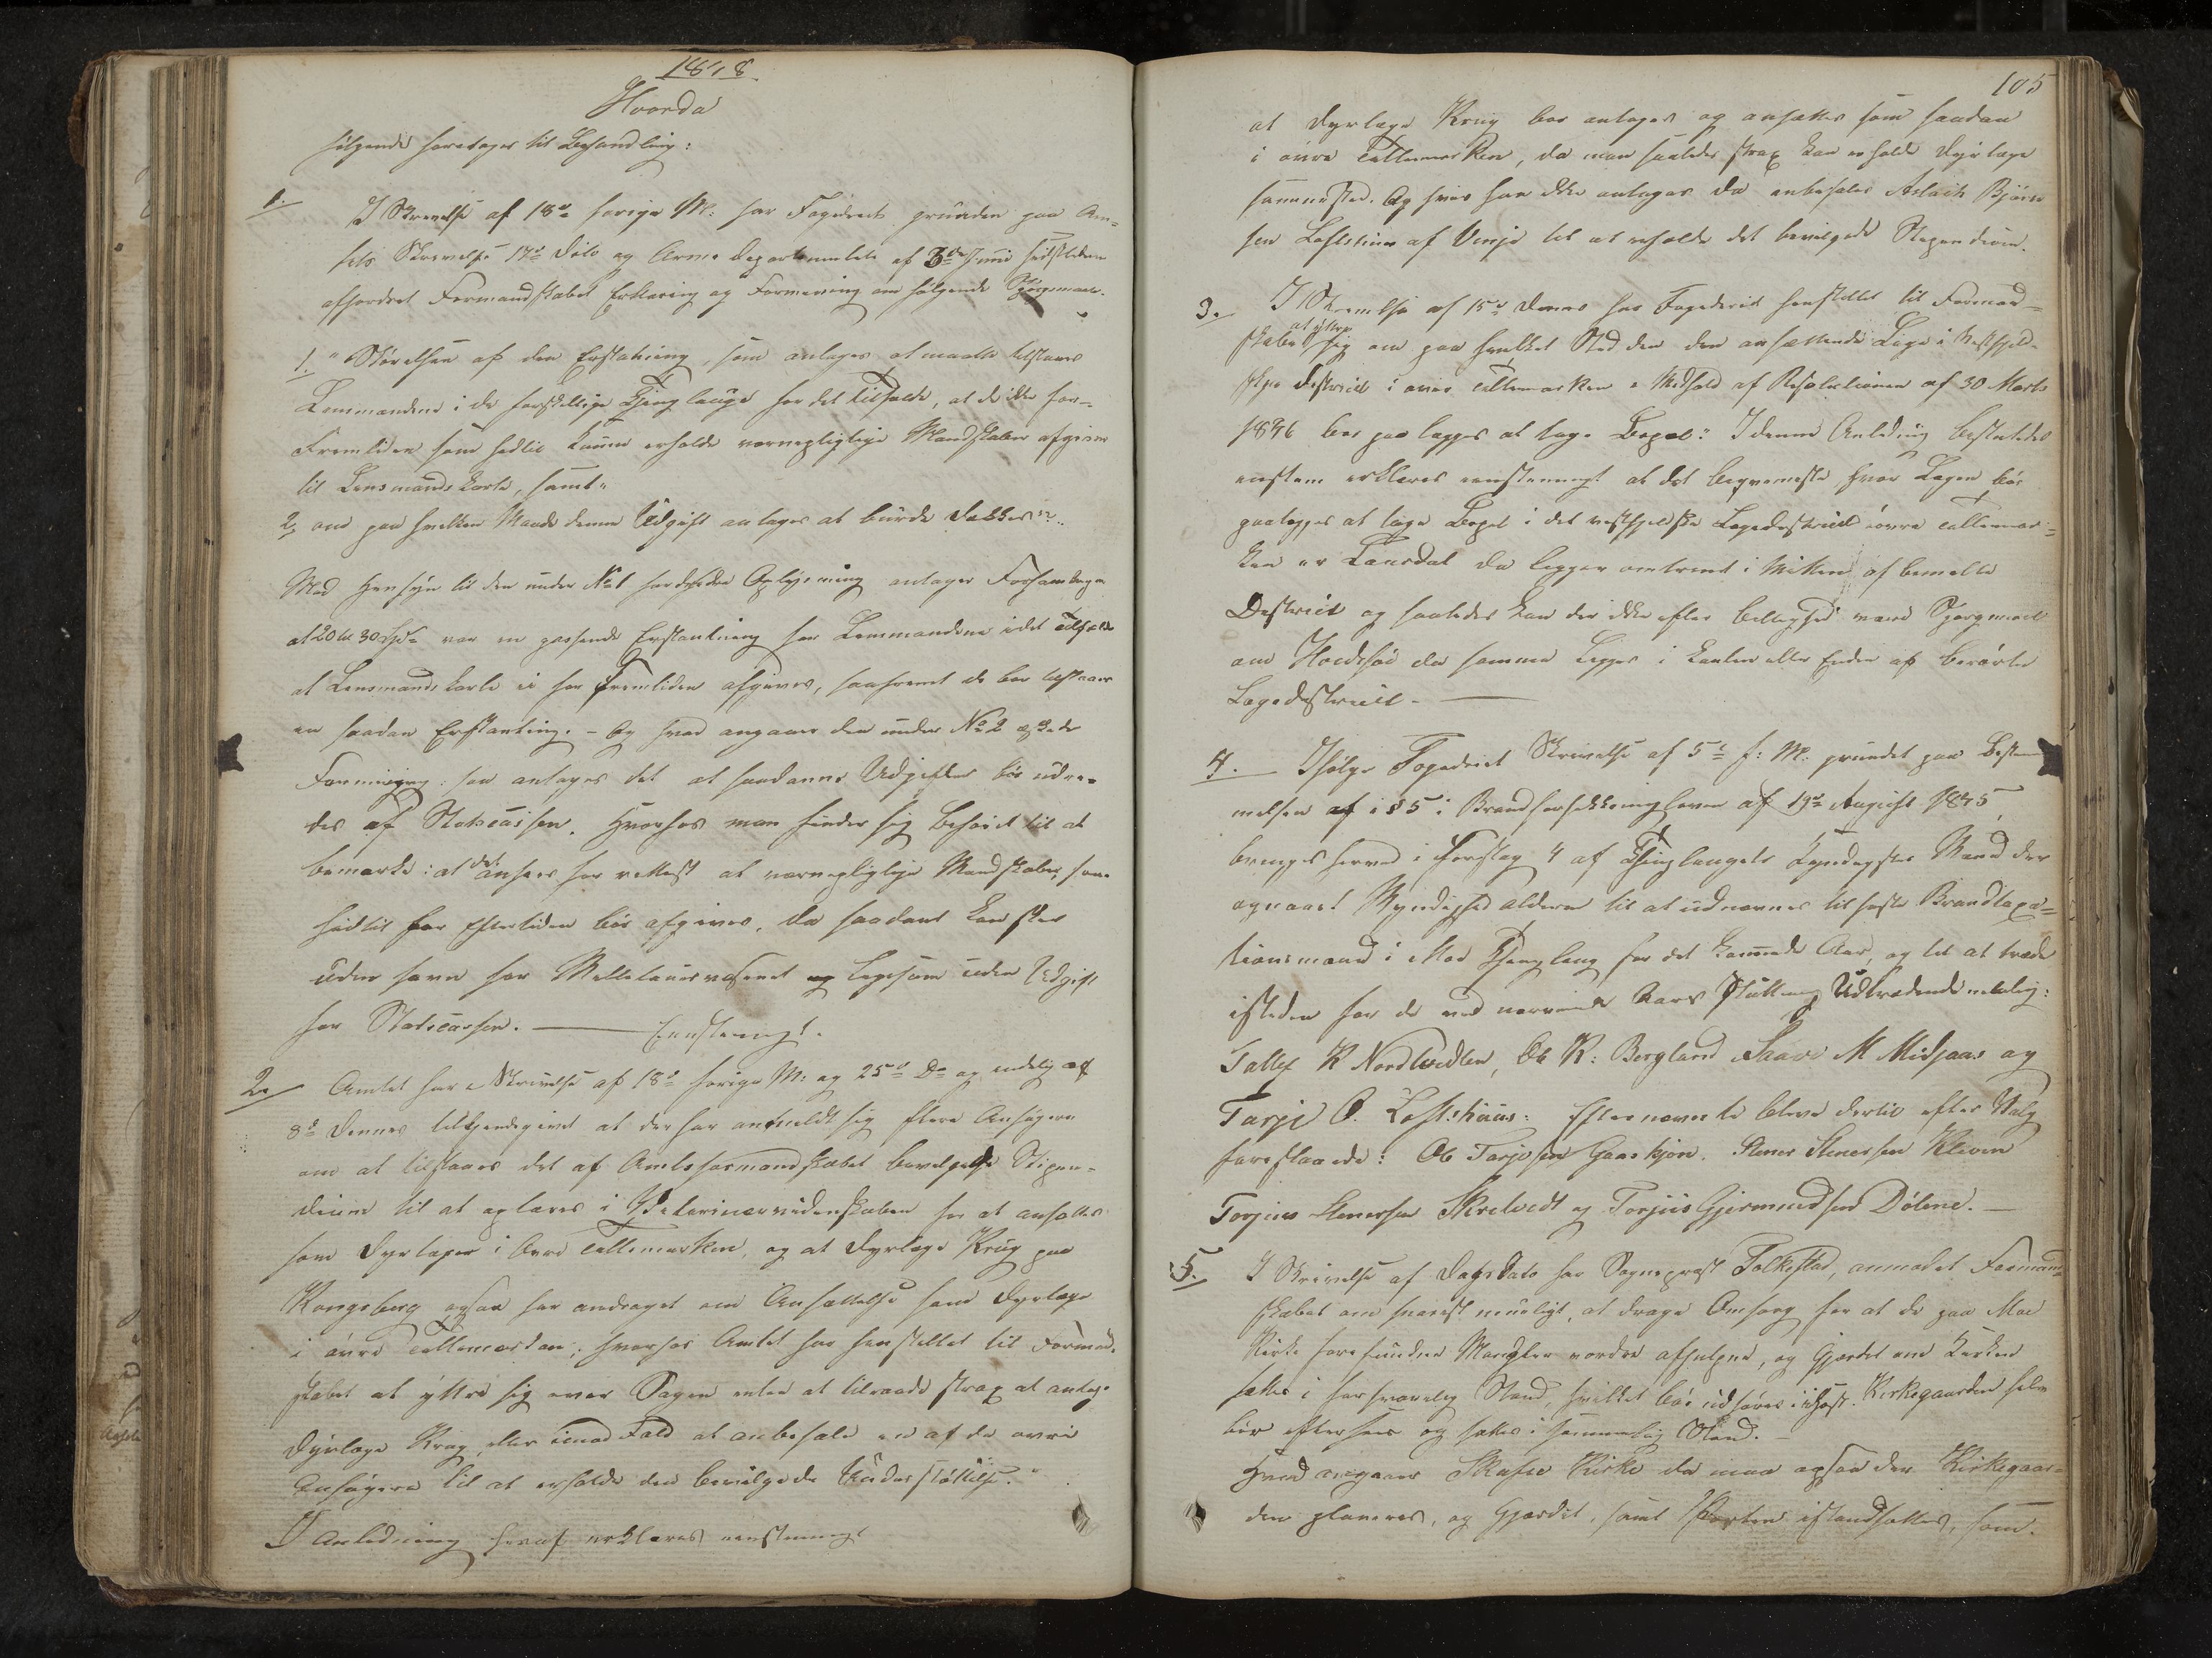 1848
Hvorda
følgende foretages til Behandling:
1. I Skrivelse af 18de forige M: har Fogderiet grunden paa Am-
tets Skrivelse 17de Dito og Arme Departementets af 3die Juni sidstleden
affordret Formandskabet Erklæring og Formening om følgende Spørgsmaal.
1. "Størelsen af den Erstatning, som antages at maatte tilstaaes
Lensmændene i de forskjellige Thinglaug for det Tilfælde, at de ikke for-
Fremtiden som hidtil kunne erholde værnepligtige Mandskaber afgivne
til Lensmands karle, samt"
2, om paa hvilken Maade denne Udgift antages at burde dækkes".
Med Hensyn til den under No 1 fordrede Oplysning antager Forsamlingen
at 20 til 30 Spd var en passende Erstatning for Lensmændene i det Tilfælde
at Lensmands karle ei for Fremtiden afgives, saafremt de bør tilstaaes
en saadan Erstatning. - Og hvad angaaer den under No 2 æskede
Formening: saa antages det at saadanne Udgifter bør udre-
des af Statscassen. Hvorhos man finder sig beføiet til at
bemærke: at det ansees for rettest at værnepligtige Mandskaber, som
hidtil for Eftertiden bør afgives, da saadant kan skee
uden savn for Militairvæsenet og ligesom uden Udgift
for Statscassen. — Eenstemmigt.
2. Amtet har i Skrivelse af 18de forige M: og 25de Do og endelig af
8de dennes tilkjendegivet at der har anmeldt sig flere Ansøgere
om at tilstaaes det af Amtsformandskabet bevilgede Stipen-
dium til at oplæres i Veterinairvidenskaben for at ansættes
som Dyrlæger i Øvre Tellemarken, og at Dyrlæge Krüg paa
Kongsberg ogsaa har andraget om Ansættelse som Dyrlæge
i øvre Tellemarken; hvorhos Amtet har henstillet til Formand-
skabet at yttre sig over Sagen enten at tilraade strax at antage
Dyrlæge Krug eller i mod Fald at anbefale en af de øvre
Ansøgere til at erholde den bevilgede Understøttelse."
I Anledning heraf erklæres eenstemmigt
105
at Dyrlæge Krüg bør antages og ansættes som saadan
i øvre Tellemarken, da man saaledes strax kan erholde Dyrlæge
sammested. Og hvis han ikke antages da anbefales Aslach Bjørn
sen Loftshuus af Vinje til at erholde det bevilgede Stependium.
3. I Skrivelse af 15de dennes har Fogderiet henstillet til Formand-
skabet at yttre sig om paa hvilket Sted den den ansættende Læge i Vestfjeld-
ske District i øvre Tellemarken i Medhold af Resolutionen af 30 Marts
1846 bør paa lægges at tage Bopæl: I denne Anledning besluttedes
eenstem erklæres eenstemmigt at det beqvemeste hvor Lægen bør
paalægges at tage Bopel i det vestfjeldske Lægedistrict i øvre Tellemar-
ken er Laurdal da ligger omtrent i Mitten af bemelte
District og saaledes kan der ikke efter beliggenhed være Spørgsmaal
om Hvideseid da samme ligger i kanten eller Enden af berørte
Lægedistrict. —
4. Ifølge Fogderiet Skrivelse af 5te f: M: grundet paa Bestem
melsen af i § 5 i Brandforsikkringsloven af 19de August 1845,
bringes herved i Forslag 4 af Thinglaugets kyndigste Mænd der
opnaaet Myndighed alderen til at udnævnes til faste Brandtaxa-
tionsmænd i Moe Thinglaug for det kommende Aar, og til at træde
isteden for de ved nærværende Aars Slutning Udtrædende nemlig:
Tallef K Nordtvedten, Ole K: Bergland Saave M Midjaas og
Tarje O. Loftshuus: Efternævnte bleve dertil efter Valg
foreslaaede: Ole Tarjesen Gaaskjøn. Stener Stenersen Kleven
Torjuus Stenersen Skretvedt og Torjuus Gjermundsen Dølene. —
5. I Skrivelse af Dags Dato har Sognepræst Folkestad, anmodet Formand
skabet om snarest mueligt, at drage Omsorg for at de paa Moe
Kirke forefundne Mangler vorde afhjulpne, og Gjærdet om Kirken
sættes i forsvarlig Stand, hvilket bør udføres i Høst. Kirkegaarden selv
bør efterseees og sættes i sømmelig Stand. —
Hvad angaaer Skafse Kirke da maa ogsaa der Kirkegaar-
den planeres, og Gjærdet, samt Porten istandsættes, som.